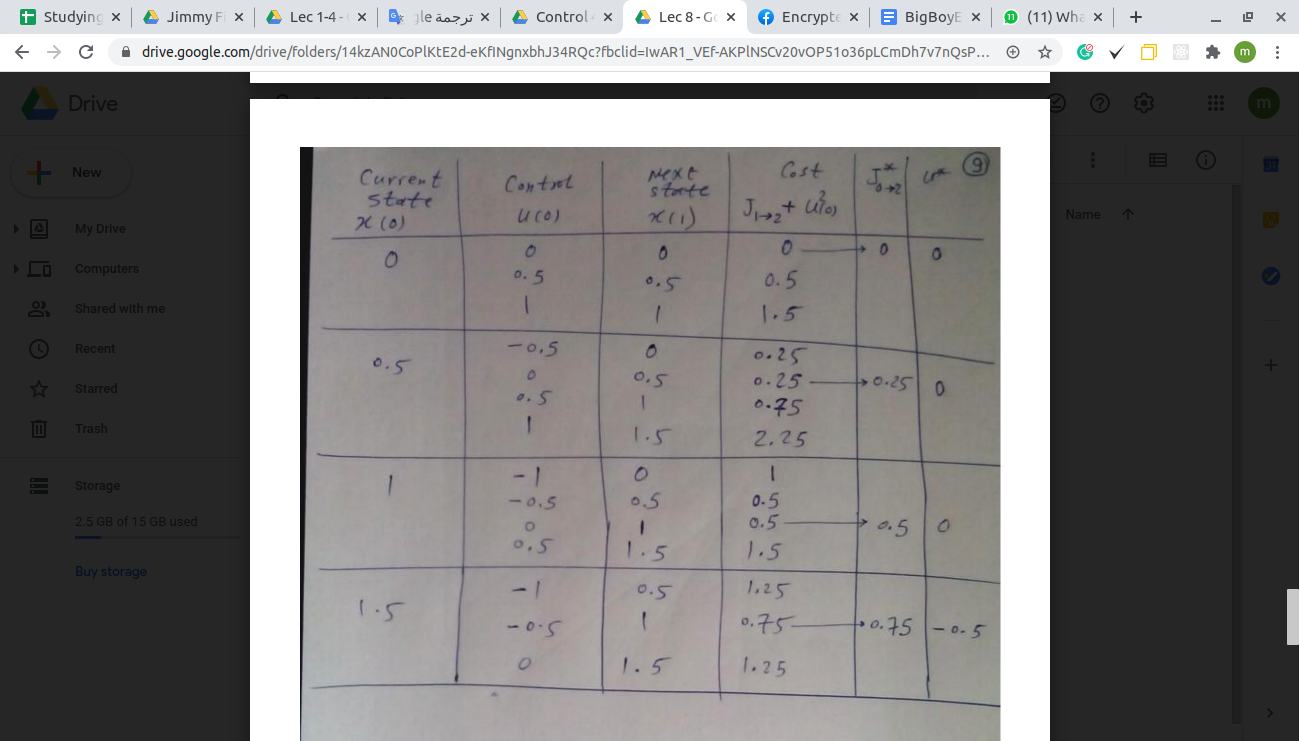 Studying
Jimmy Fi
Lec 1-4 -
gle ترجمة
Control
Lec 8 - Go
Encrypte
BigBoyE
(11) Wha
drive.google.com/drive/folders/14kzAN0CoPlKtE2d-eKfINgnxbhJ34RQc?fbclid=IwAR1_VEf-AKPlNSCv20vOP51o36pLCmDh7v7nQsP...
m
Drive
m
New
My Drive
Computers
Shared with me
Recent
Starred
Trash
Storage
2.5 GB of 15 GB used
Buy storage
Name
9
Current state x(0) Control u(0) Next state x(1) Cost J1→2 + u²(0) J*0→2 u*
0 0 0 0 → 0 0
0.5 0.5 0.5
1 1 1.5
0.5 -0.5 0 0.25
0 0.5 0.25 → 0.25 0
0.5 1 0.75
1 1.5 2.25
1 -1 0 1
-0.5 0.5 0.5
0 1 0.5 → 0.5 0
0.5 1.5 1.5
1.5 -1 0.5 1.25
-0.5 1 0.75 → 0.75 -0.5
0 1.5 1.25